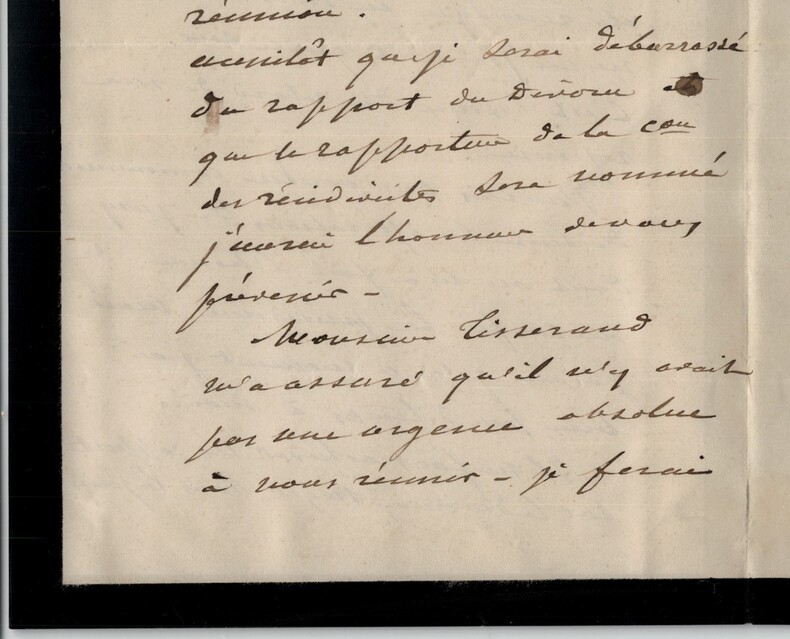 réunion.
aussitôt que je serai débarrassé
du rapport du Divorce et
que le rapporteur de la Con
des récidivistes sera nommé
j'aurai l'honneur de vous
prévenir –
Monsieur Tisserand
m'a assuré qu'il n'y avait
pas une urgence absolue
à nous réunir – je ferai